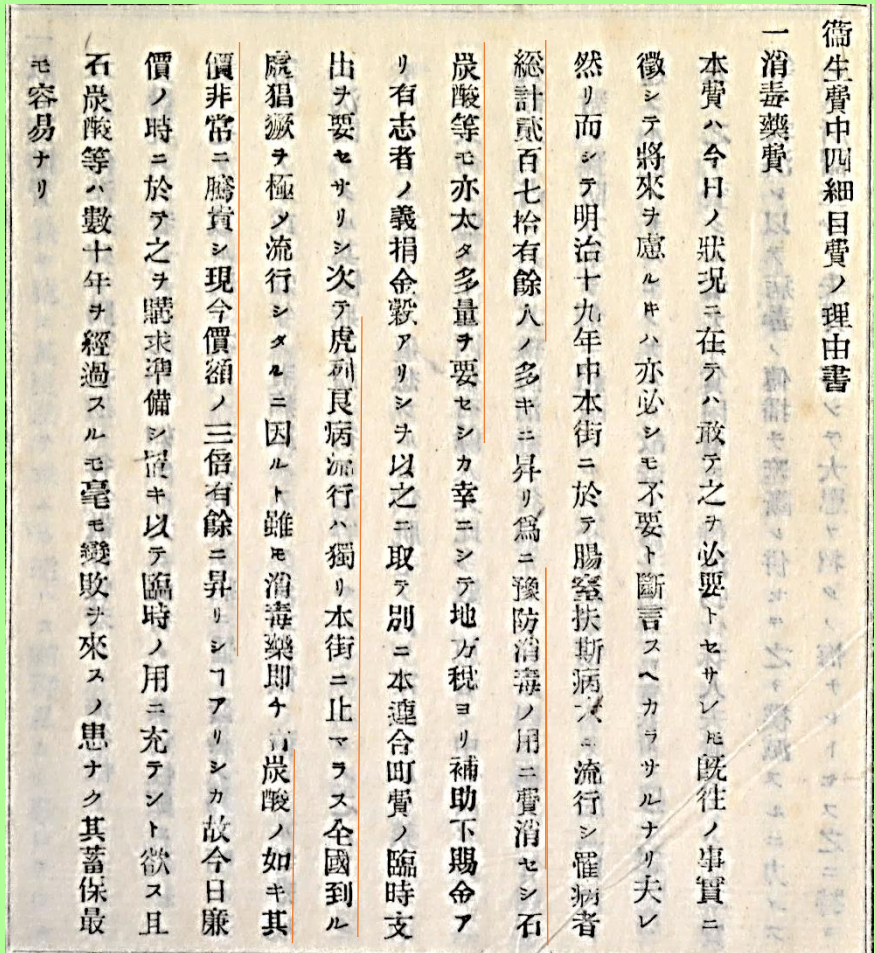 衞生費中四細目費ノ理由書
一消毒藥費
本費ハ今日ノ狀況ニ在テハ敢テ之ヲ必要トセサレ𪜈既往ノ事實ニ
徵シテ將來ヲ慮ルㇳキハ亦必シモ不要ト斷言スヘカラサルナリ夫レ
然リ而シテ明治十九年中本街ニ於テ腸窒扶斯病大ニ流行シ罹病者
総計貳百七拾有餘人ノ多キニ昇リ爲ニ豫防消毒ノ用ニ費消セシ石
炭酸等モ亦太タ多量ヲ要セシカ幸ニシテ地方税ヨリ補助下賜金ア
リ有志者ノ義捐金穀アリシヲ以之ニ取テ別ニ本連合町費ノ臨時支
出ヲ要セサリシ次テ虎列良病流行ハ獨リ本街ニ止マラス全國到ル
處猖獗ヲ極メ流行シタルニ因ルト雖モ消毒藥即チ石炭酸ノ如キ其
價非常ニ騰貴シ現今價額ノ三倍有餘ニ昇リシヿアリシカ故今日廉
價ノ時ニ於テ之ヲ購求準備シ置キ以テ臨時ノ用ニ充テント欲ス且
石炭酸等ハ數十年ヲ經過スルモ毫モ變敗ヲ來スノ患ナク其蓄保最
モ容易ナリ